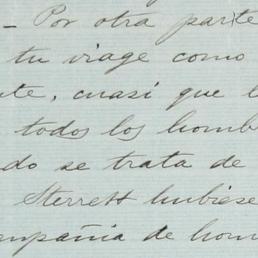 - Por otra parte
tu viage como
te, cuasi que l
todos los homb
do se trata de
Sterrett hubiese
mpañia de hom